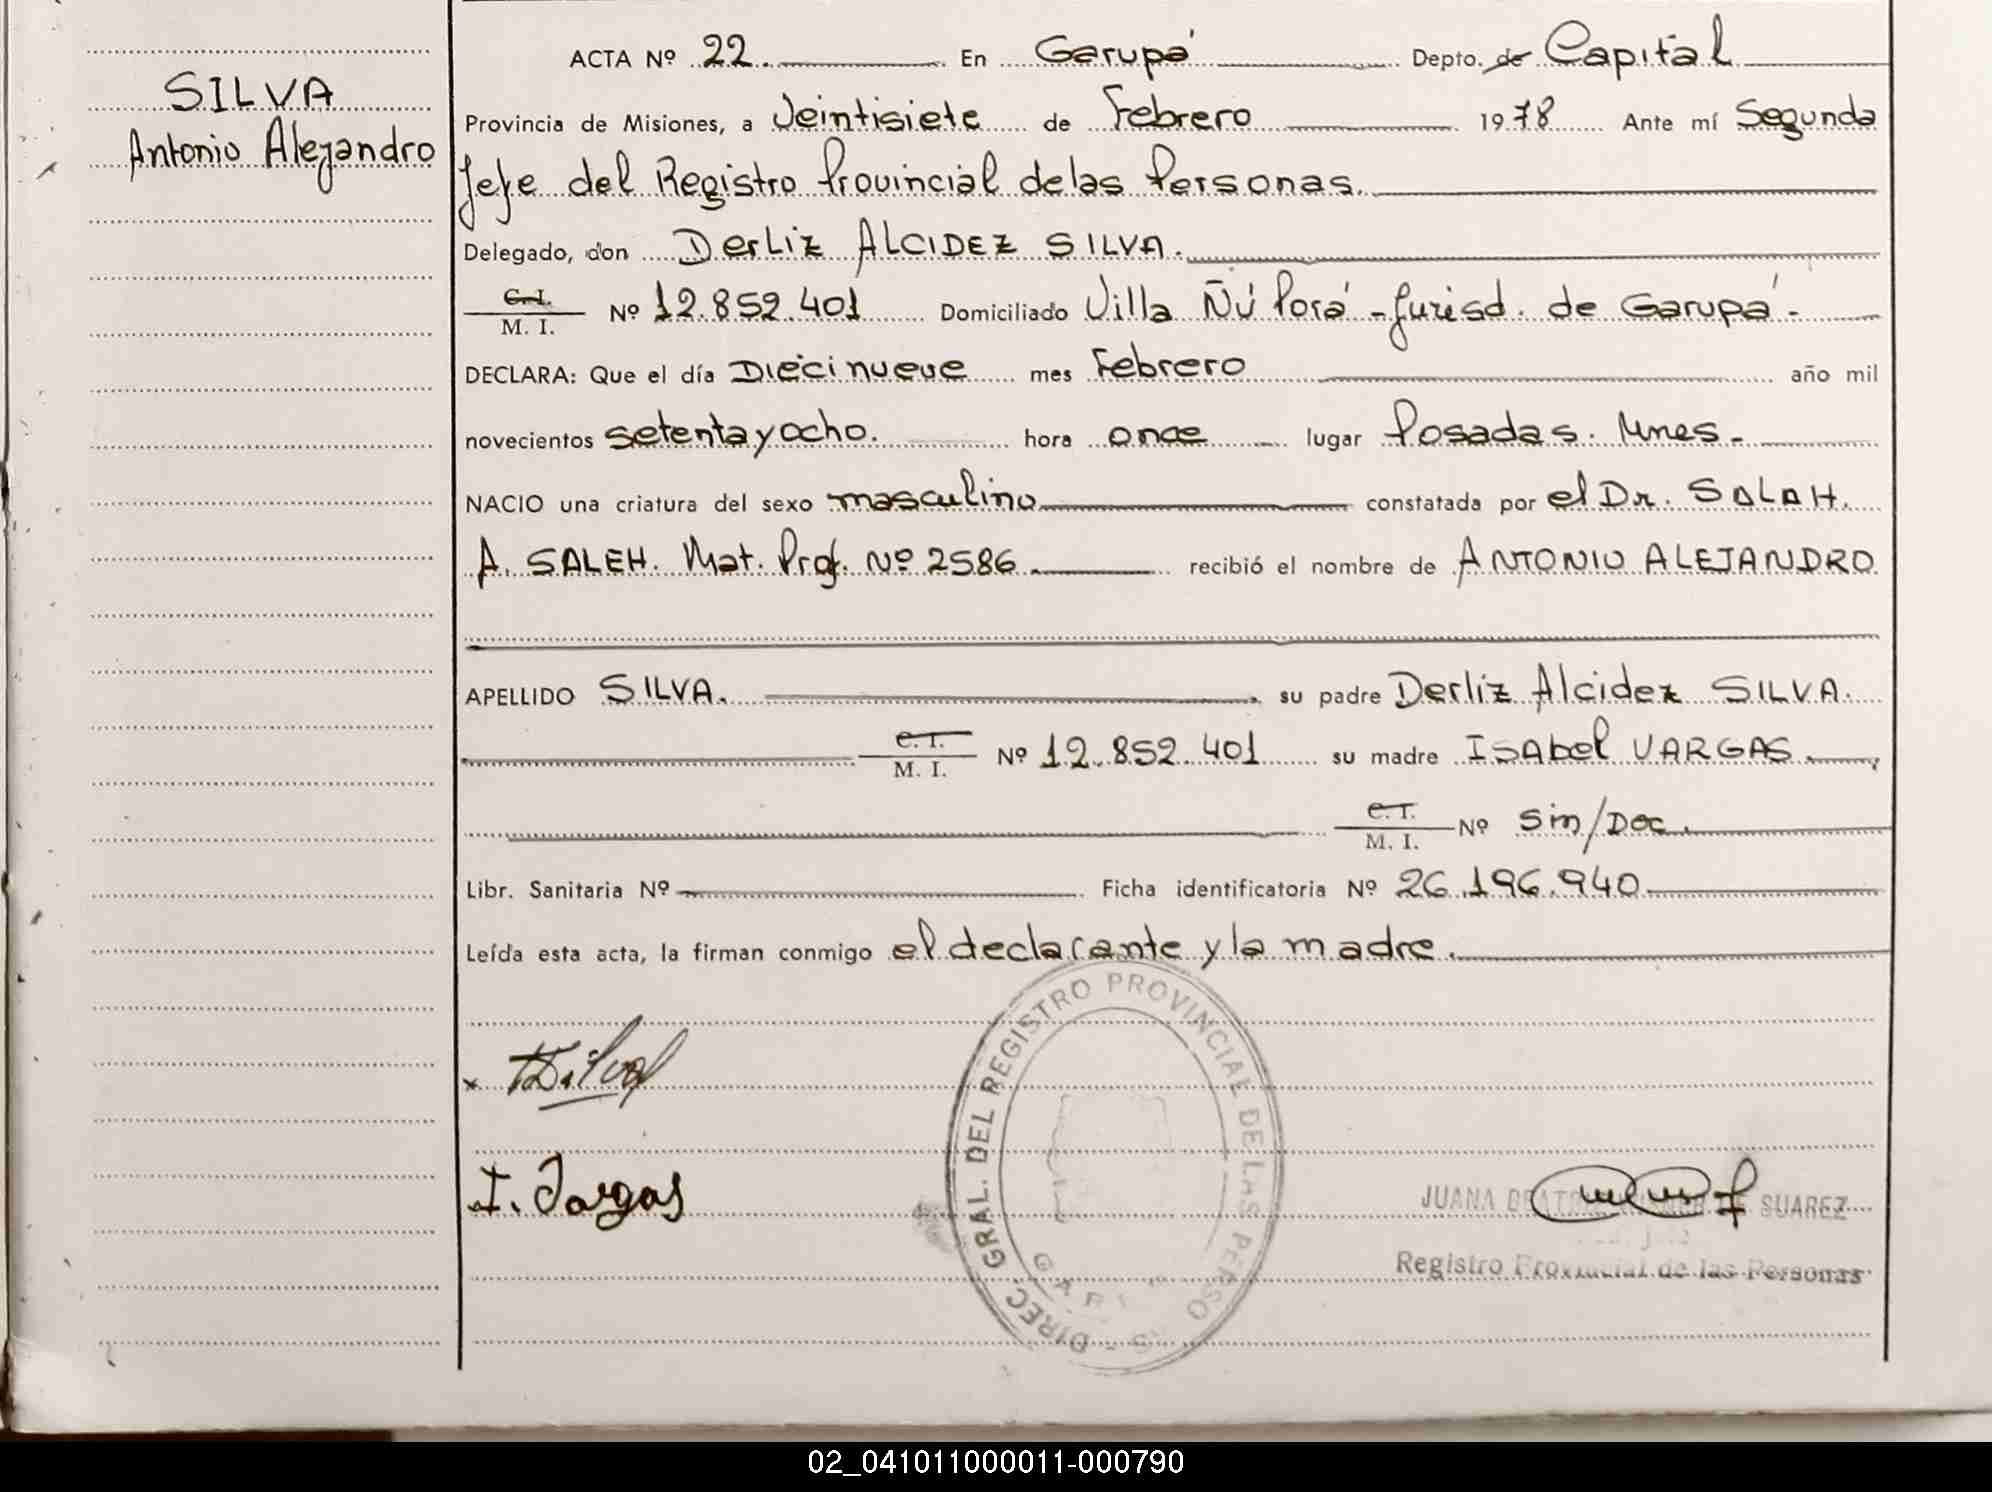 SILVA
Antonio Alejandro
ACTA Nº 22. En Garupá Depto. de Capital
Provincia de Misiones, a Veintisiete de Febrero 1978 Ante mí Segunda
Jefe del Registro Provincial de las Personas.
Delegado, don Derliz ALCIDEZ SILVA.
C. I.
M. I. Nº 12.852.401 Domiciliado Villa Ñú Porá - Jurisd. de Garupá -
DECLARA: Que el día Diecinueve mes Febrero año mil
novecientos setenta y ocho. hora once lugar Posadas. Mnes -
NACIO una criatura del sexo masculino constatada por el Dr. SALAH.
A. SALEH. Mat. Prof. Nº 2586 recibió el nombre de ANTONIO ALEJANDRO
APELLIDO SILVA. su padre Derliz Alcidez SILVA.
C. I.
M. I. Nº 12.852.401 su madre ISAbel VARGAS
C. I.
M. I. Nº Sin/Doc.
Libr. Sanitaria Nº Ficha identificatoria Nº 26.196.940
Leída esta acta, la firman conmigo el declarante y la madre.
DIREC. GRAL. DEL REGISTRO PROVINCIAL DE LAS PERSO
x Silva
I. Vargas
JUANA SUAREZ
Registro Provincial de las Personas
02_041011000011-000790